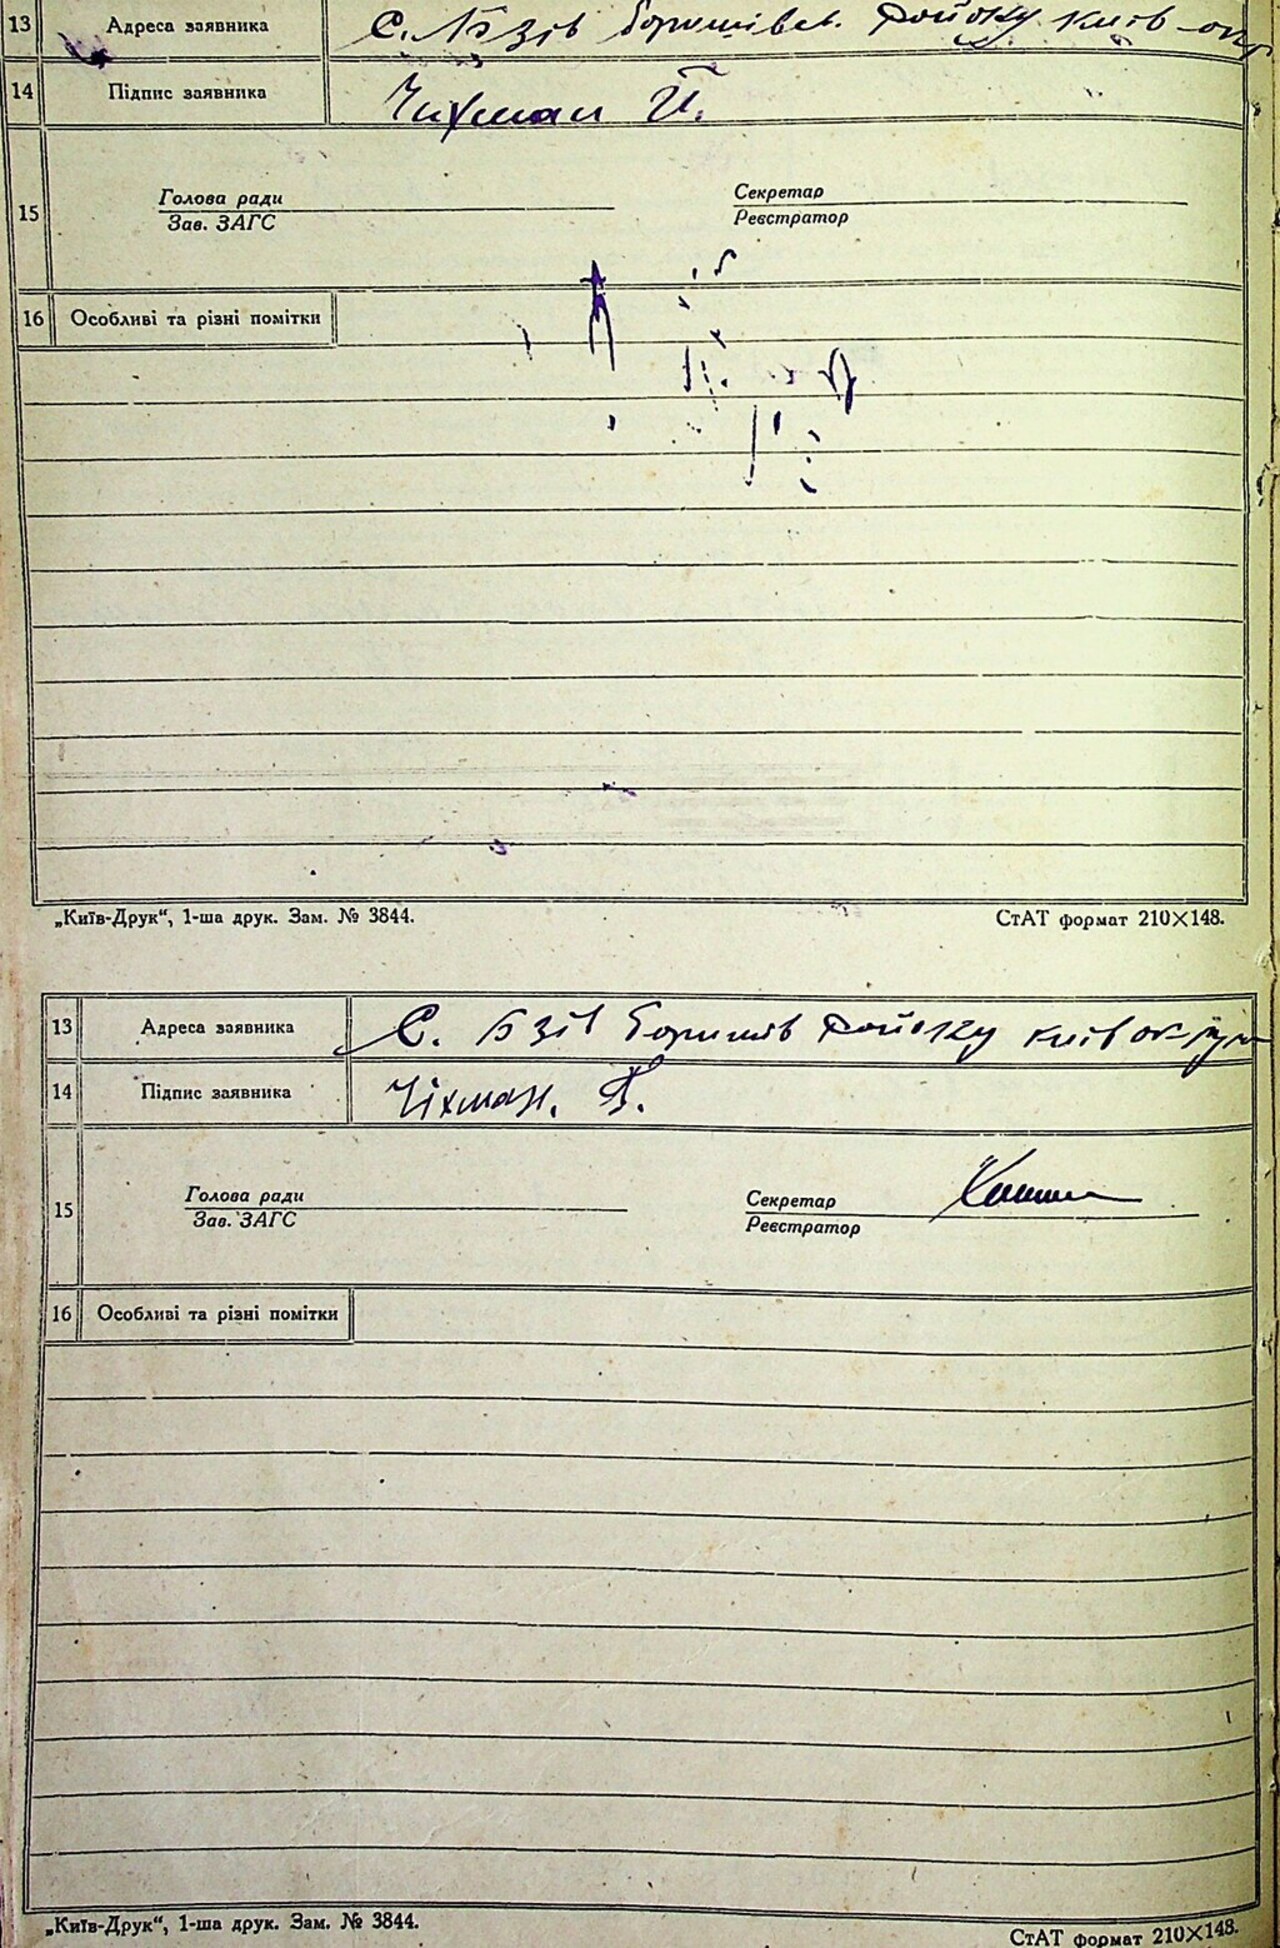 13 Адреса заявника С. Бзів Боришівсь. району Київ-окр
14 Підпис заявника Чихман Й.
15 Голова ради Секретар
Зав. ЗАГС Реєстратор
16 Особливі та різні помітки
„Київ-Друк“, 1-ша друк. Зам. № 3844. СтАТ формат 210×148.
13 Адреса заявника С. Бзів Боришів району Київ округи
14 Підпис заявника Чіхман.
15 Голова ради Секретар
Зав. ЗАГС Реєстратор
16 Особливі та різні помітки
„Київ-Друк“, 1-ша друк. Зам. № 3844. СтАТ формат 210×148.